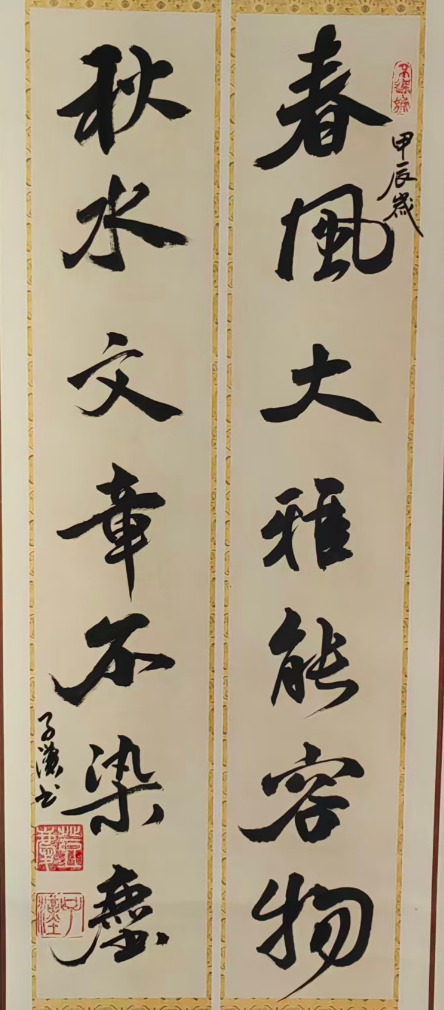 甲辰歲
春風大雅能容物
秋水文章不染塵
子漢书